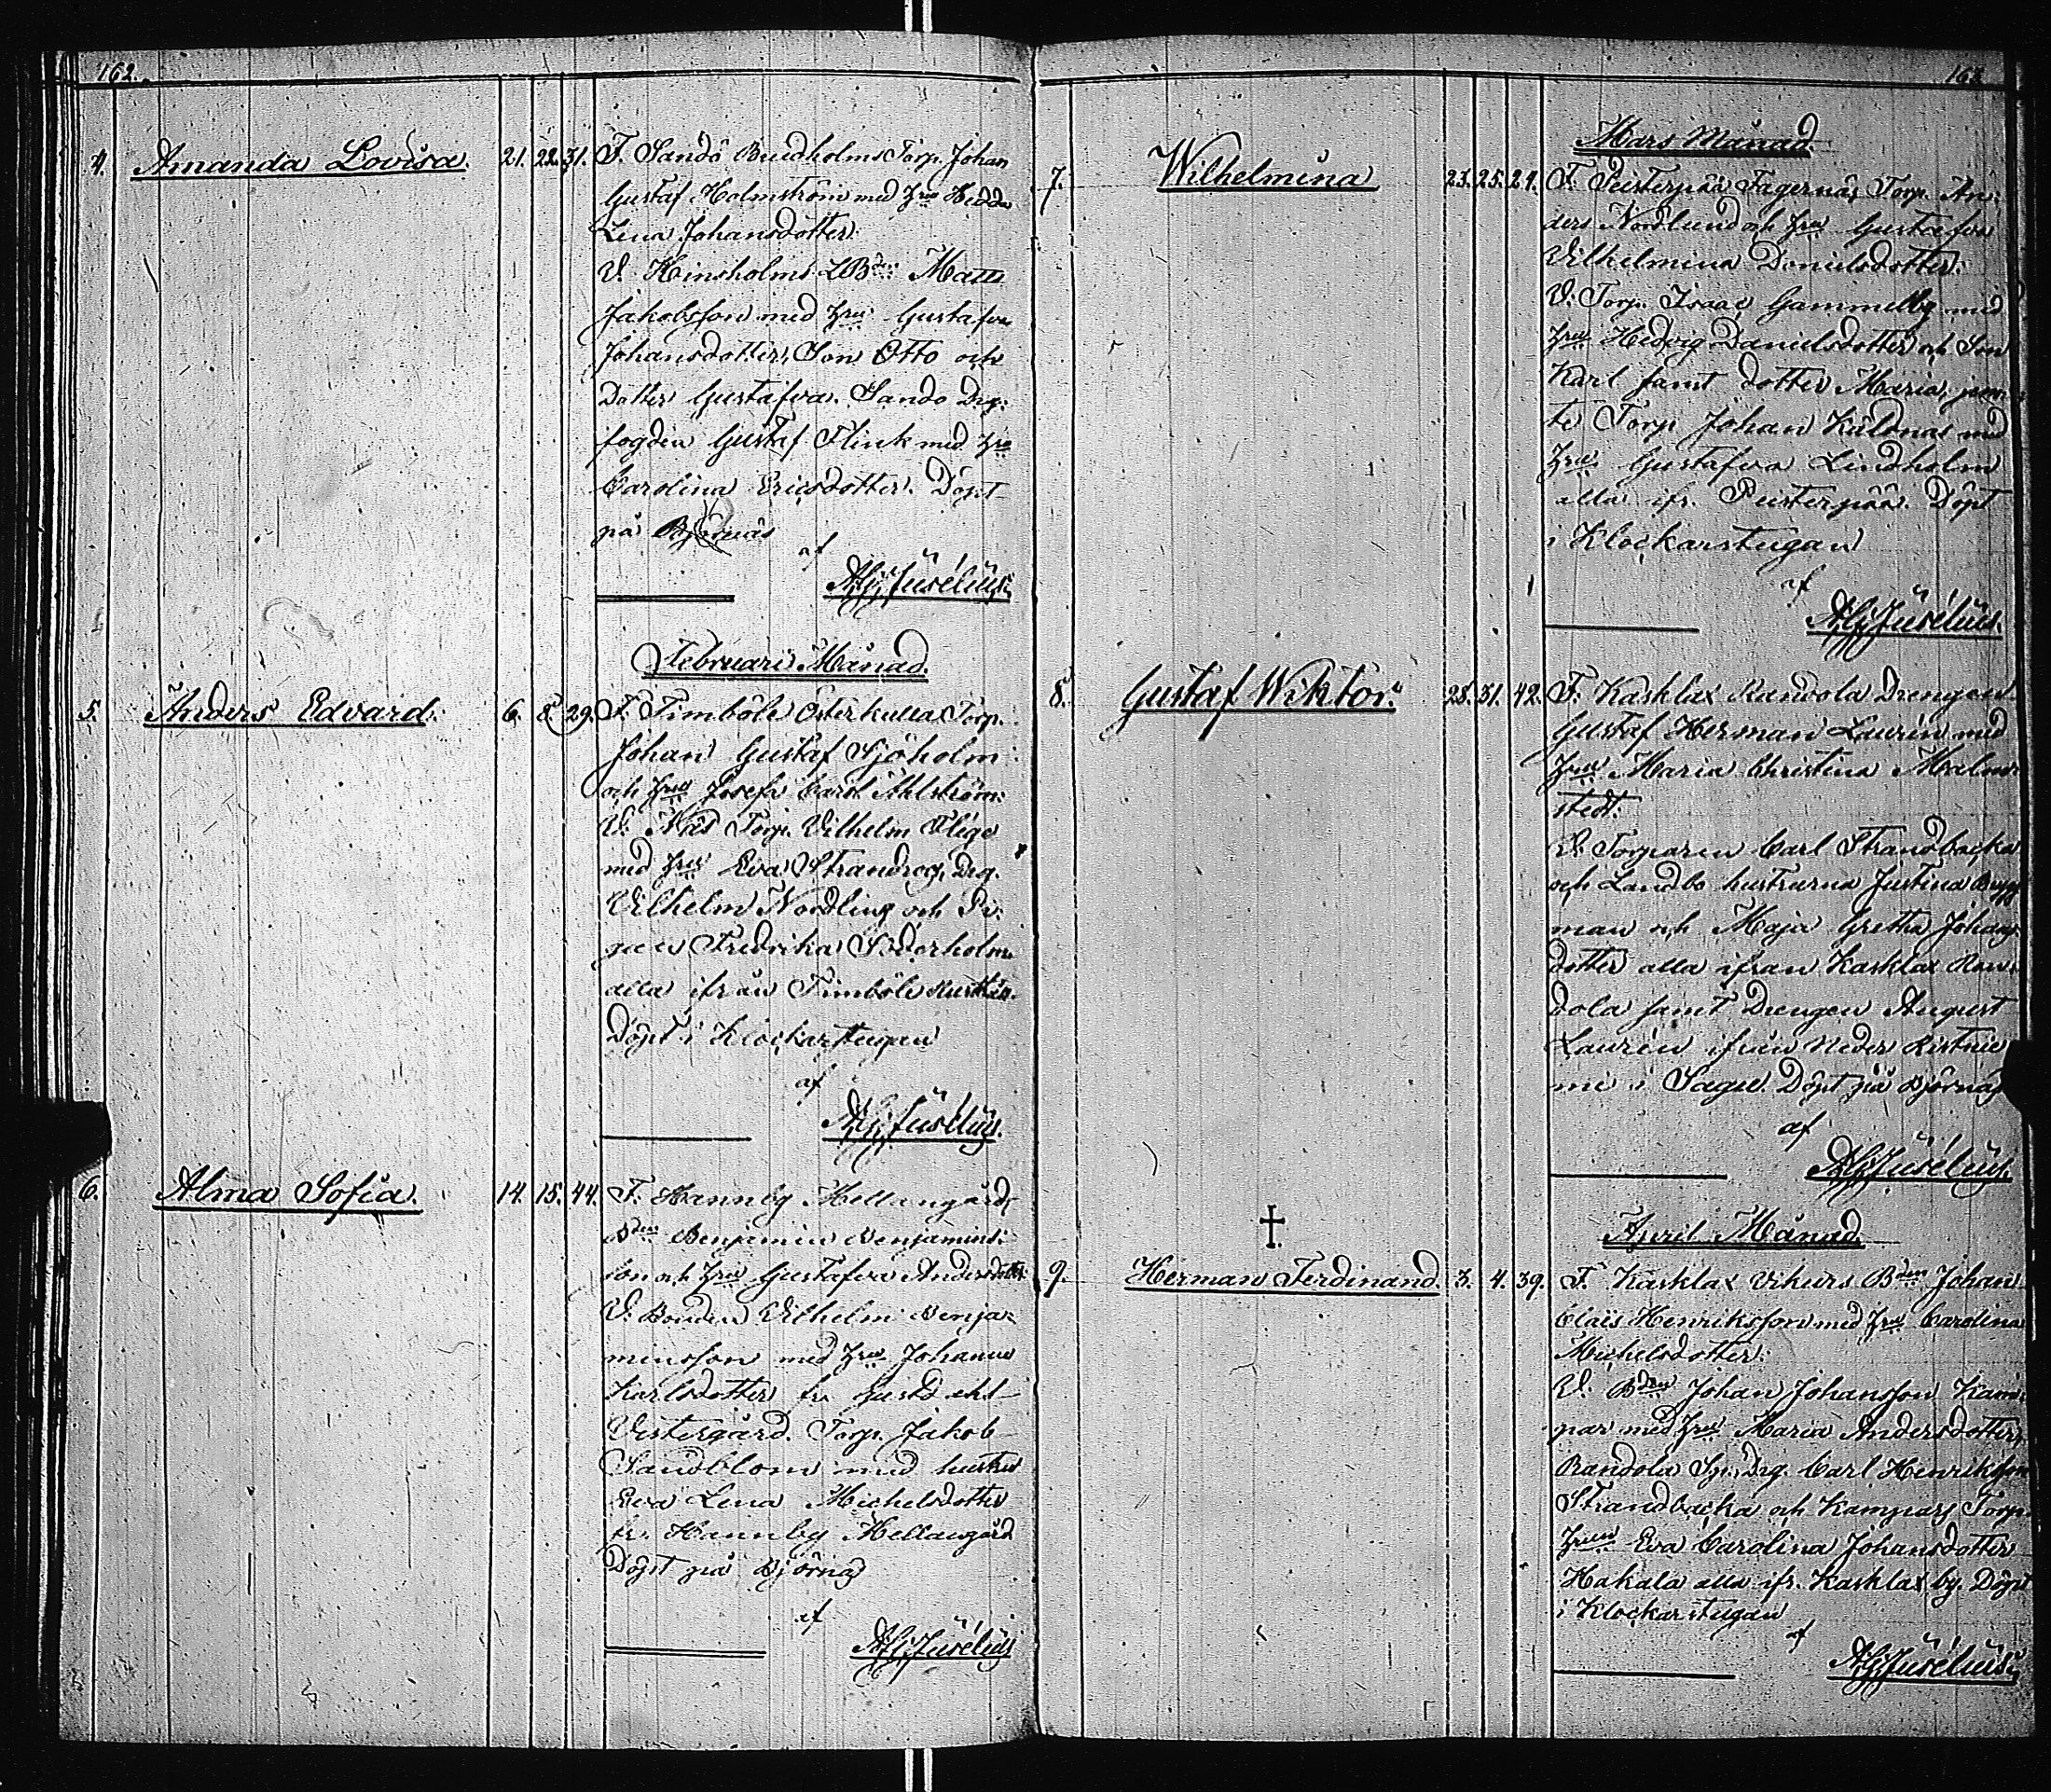 162.
4. Amanda Lovisa. 21. 22. 31. F. Sandö Bredholms Torp. Johan
Gustaf Holmström med Hru Hedda
Lena Johansdotter:
V. Hinsholms LBdn: Matts
Jakobsson med Hru Gustafva
Johansdotter, Son Otto och
Dotter Gustafva. Sando Drg:
fogden Gustaf Flink med Hru
Carolina Ericsdotter. Döpt
på Björnäs
af
A. G. Jusélius.
Februari Månad.
5. Anders Edvard. 6. 8. 29. F. Fimböle Österkulla Torp.
Johan Gustaf Sjöholm
och Hru Josefa Carol. Åhlström:
V. Näs Torp. Vilhelm Flege
med Hru Eva Strandrog, Drg.
Vilhelm Nordling och Pi:
gan Fredrika Söderholm
alla ifrån Fimböle Rusthåll.
Döpt i Klockarstugan
af
A. G. Jusélius.
6. Alma Sofia. 14. 15. 44. F. Hannby Mellangårds
Bdn Benjamin Benjamins:
son och Hru Gustafva Andersdotter
V. Bonden Vilhelm Benja-
minsson med Hru Johanna
Karlsdotter fr.
Vestergård. Torp. Jakob
Sandblom med hustru
Eva Lena Michelsdotter
fr. Hannby Mellangård
Döpt på Björnäs
af
A. G. Jusélius
163.
Mars Månad.
7. Wilhelmina 23. 25. 27. F. Peisterpää Fagernäs Torp. An:
ders Nordlund och Hru Gustafva
Vilhelmina Danielsdotter:
V. Torp. Isaac Gammelby med
Hru Hedvig Danielsdotter och Son
Karl samt dotter Maria, jem-
te Torp. Johan Kaldnäs med
Hru Gustafva Lindholm
alla ifr. Peisterpää. Döpt
i Klockarstugan
af
A. G. Jusélius.
8. Gustaf Wiktor. 28. 31. 42. F. Kasklax Randola Drengen
Gustaf Herman Laurén med
Hru Maria Christina Malm-
stedt:
V. Torparen Carl Strandbacka
och Landbo hustrurna Justina Bygg
man och Maja Gretha Johans
dotter alla ifrån Kasklax Ran:
dola samt Drengen August
Laurén ifrån Neder Kistnie
mi i Sagu. Döpt på Björnäs
af
A. G. Jusélius.
April Månad.
†
9. Herman Ferdinand. 3. 4. 39. F. Kasklax Vikars Bden Johan
Claës Henriksson med Hru Carolina
Michelsdotter:
V. Bden Johan Johansson Kam:
par med Hru Maria Andersdotter,
Randola Drg. Carl Henriksson
Strandbacka och Kampars Torp.
Hru Eva Carolina Johansdotter
Hakala alla ifr. Kasklax by. Döpt
i Klockarstugan
af
A. G. Jusélius.